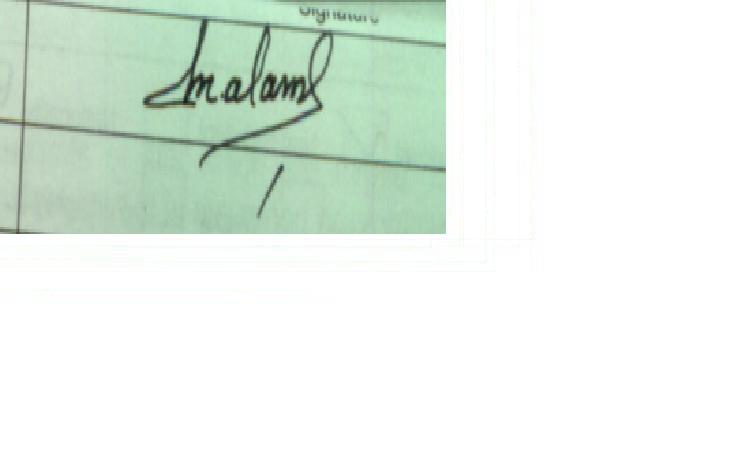 Signature
malam